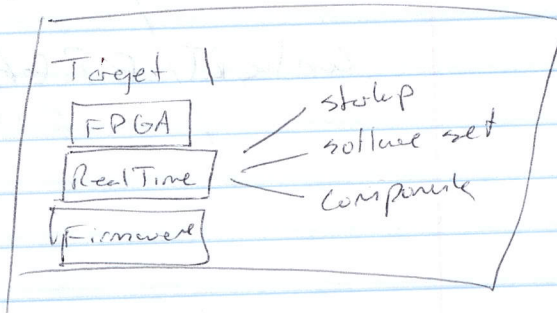 Target 1
FPGA
RealTime
Firmware
startup
software set
components